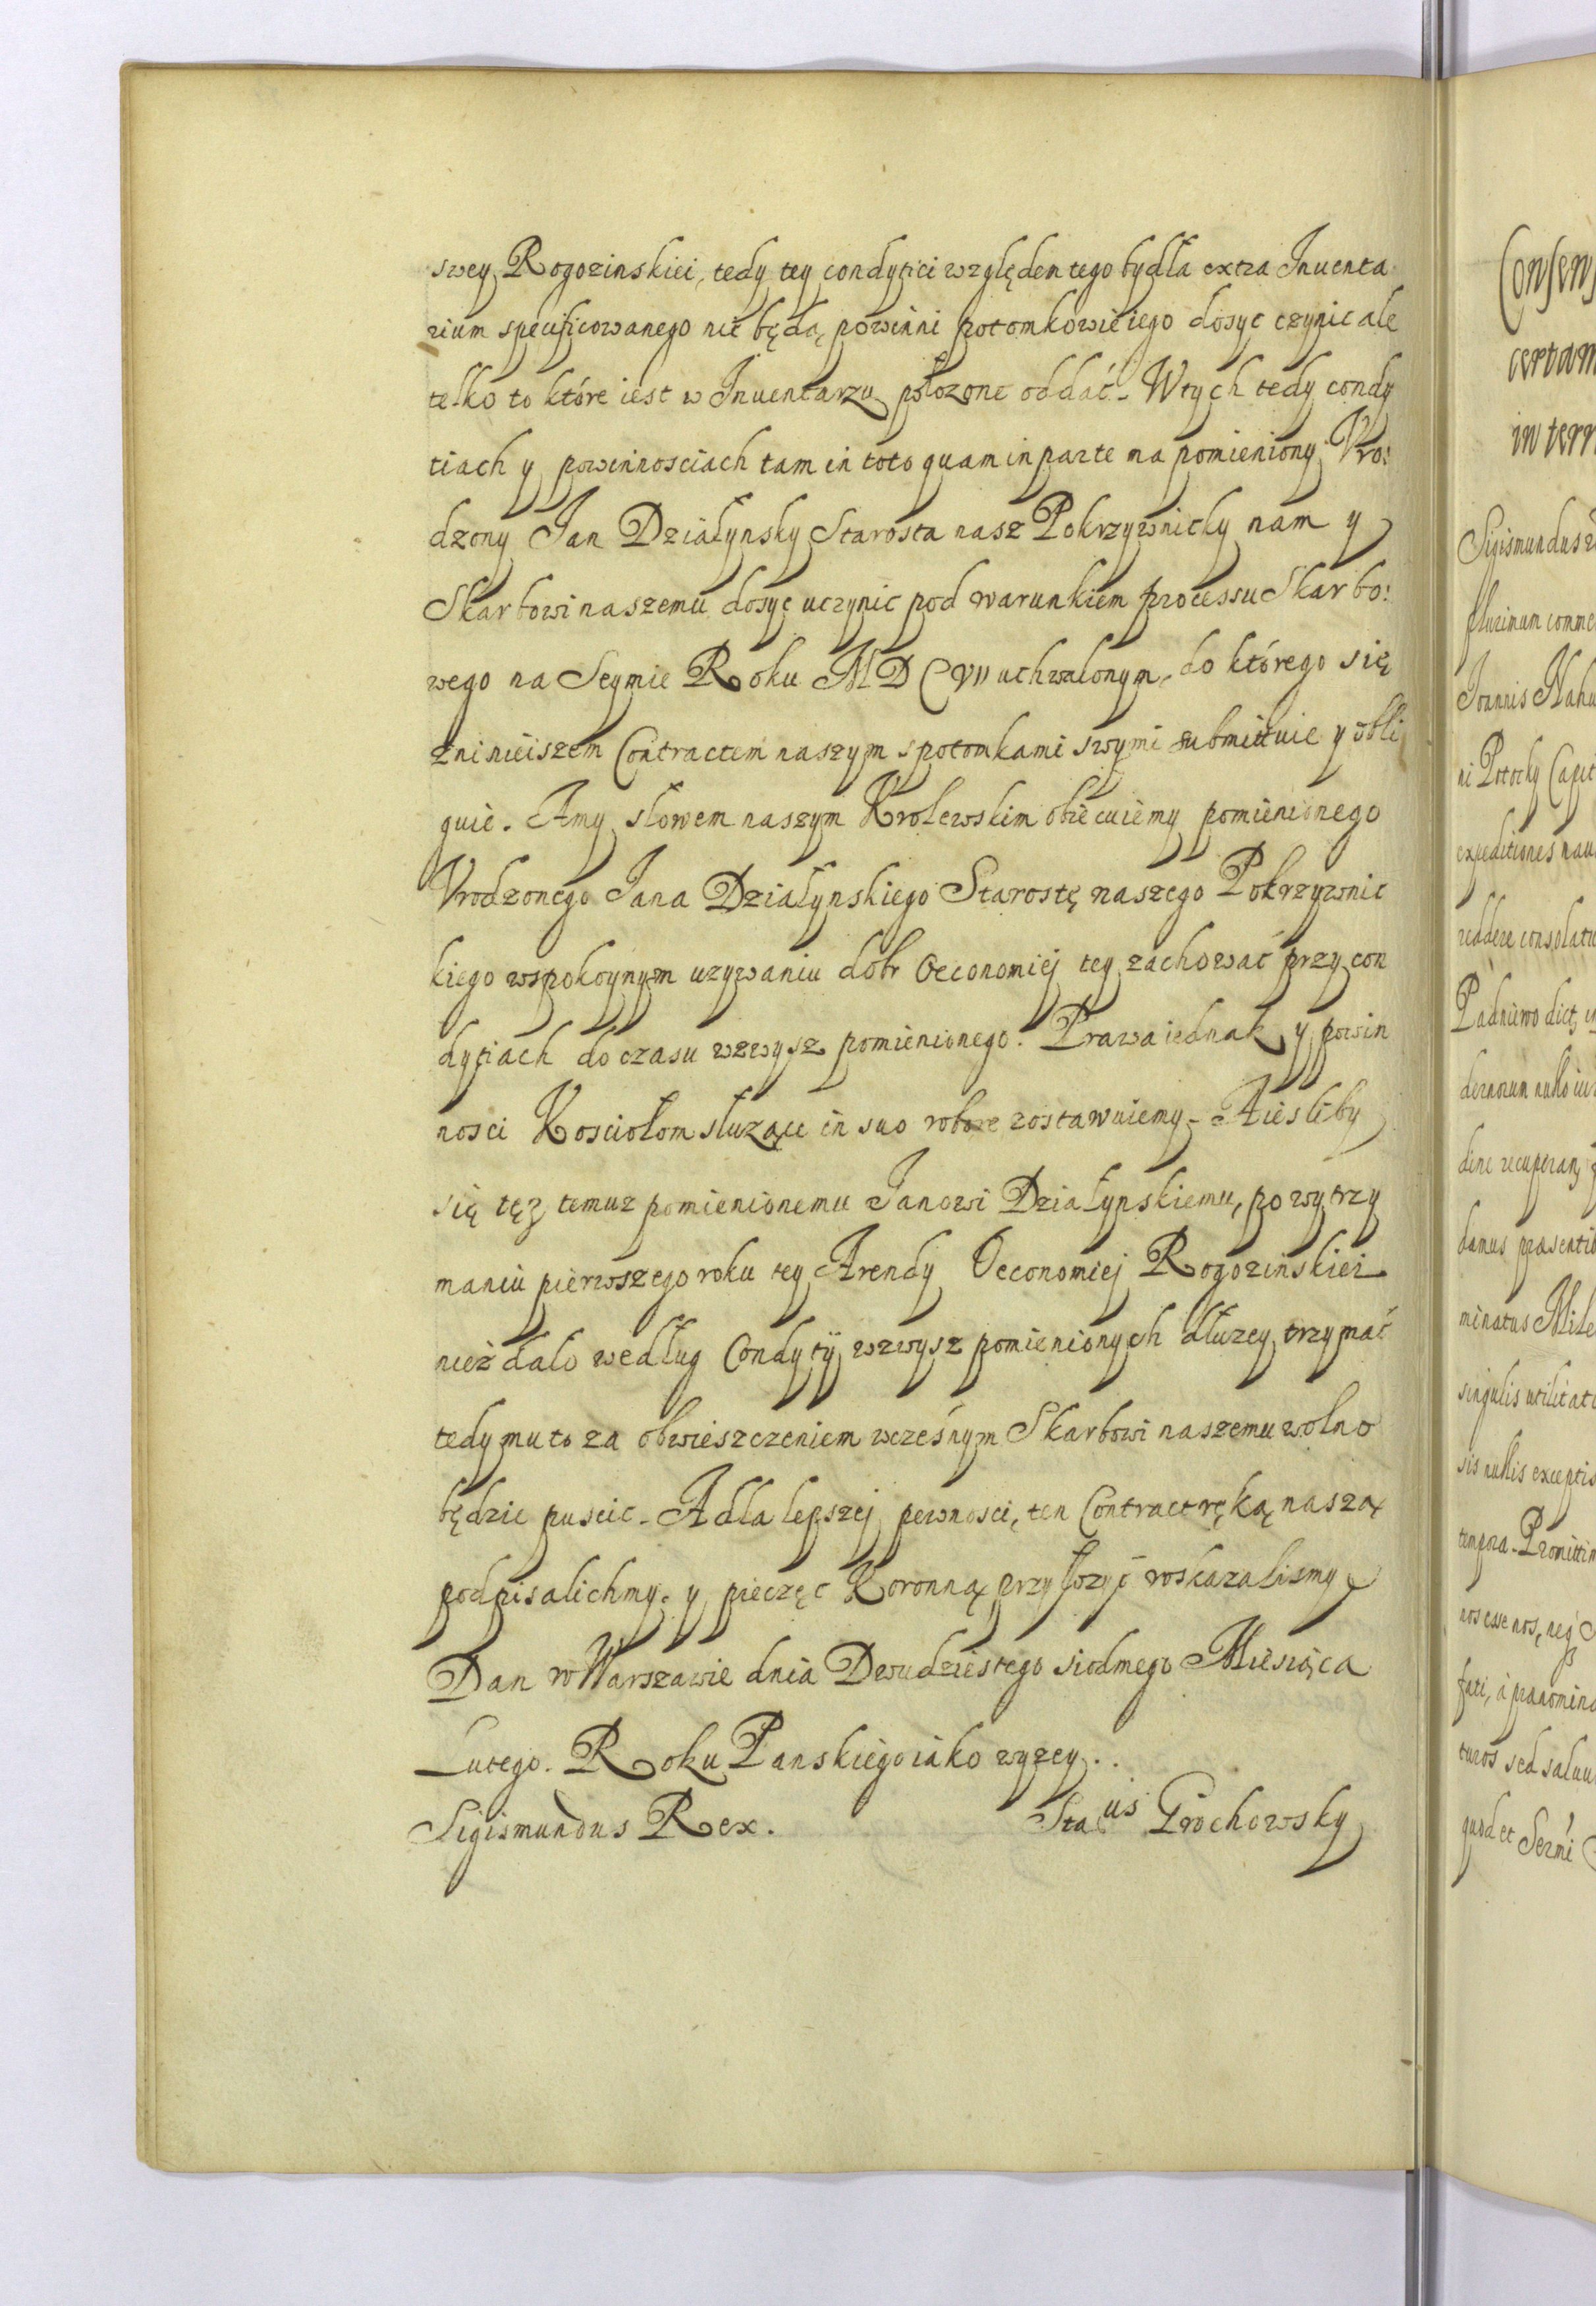 swey Rogozinskiei, tedy tey condytiei względem tego bydła extra Inuenta
rium specificowanego nie będą powinni potomkowie iego dosyc czynic ale
telko to które iest w Inuentarzu położone oddać. Wtych tedy condy
tiach y powinnosciach tam in toto quam in parte ma pomieniony Vro:
dzony Jan Działynsky Starosta nasz Pokrzywnicky nam y
Skarbowi naszemu dosyc uczynic pod warunkiem processu Skarbo:
wego na Seymie Roku MDCVII uchwalonym, do którego się
zninieiszem Contractem naszym spotomkami swymi submittuie y obli
guie. Amy słowem naszym Krolewskim obiecuiemy pomienionego
Vrodzonego Jana Działynskiego Starostę naszego Pokrzywnic
kiego wspokoynym uzywaniu dobr Oeconomiej tey zachować przy con
dytiach do czasu wzwysz pomienionego. Prawa iednak y powin
nosci Kosciołom służące in suo robore zostawuiemy. Aiesliby
się tęz temuz pomienionemu Janowi Działynskiemu, po wytrzy
maniu pierwszego roku tey Arendy Oeconomiej Rogozinskiei
nieżdało według Condytÿ wzwysz pomienionych dłuzey trzymać
tedy mu to za obwieszczeniem wcześnym Skarbowi naszemu wolno
będzie puscic. Adla lepszej pewnosci, ten Contract ręką naszą
podpisalichmy. y pieczęc Koronną przyłozyć roskazalismy
Dan w Warszawie dnia Dwudziestego siodmego Miesiąca
Lutego. Roku Panskiego iako wyzey..
Sigismundus Rex. Sta(us Grochowsky
Consens
certam
in terr
Sigismundus
plurimum comme
Joannis
ni Potocky Capit
expeditiones nau
reddere consolati
Padniewo dict,
dernorum nullo iur
dine recuperan,
damus præsentib
minatus Mile
singulis utilitati
sis nullis exceptis
tempora. Promittim
nos esse nos, neq
fati, à prænomina
turos sed saluu
quod et Sermi